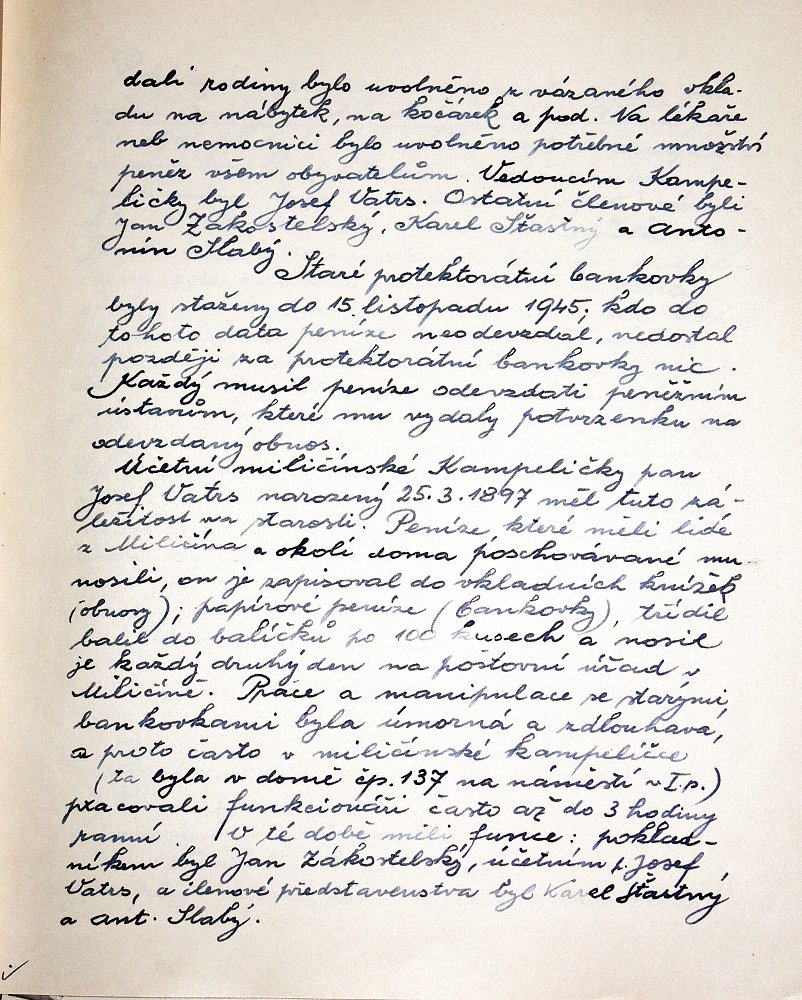 dali rodiny bylo uvolněno z vázaného vkla-
du na nábytek, na kočárek a pod. Na lékaře
neb nemocnici bylo uvolněno potřebné množství
peněz všem obyvatelům. Vedoucím Kampe-
ličky byl Josef Vatrs. Ostatní členové byli
Jan Zákostelský, Karel Šťastný a Anto-
nín Slabý.
Staré protektorátní bankovky
byly staženy do 15. listopadu 1945, kdo do
tohoto data peníze neodevzdal, nedostal
později za protektorátní bankovky nic.
Každý musil peníze odevzdati peněžním
ústavům, které mu vydaly potvrzenku na
odevzdaný obnos.
Účetní miličínské Kampeličky pan
Josef Vatrs narozený 25.3.1897 měl tuto zá-
ležitost na starosti. Peníze které měli lidé
z Miličína a okolí doma poschovávané mu
nosili, on je zapisoval do vkladních knížek
(obnosy); papírové peníze (bankovky), třídil
balil do balíčků po 100 kusech a nosil
je každý druhý den na poštovní úřad v
Miličíně. Práce a manipulace se starými
bankovkami byla úmorná a zdlouhavá,
a proto často v miličínské kampeličce
(ta byla v domě čp. 137 na náměstí v I.p.)
pracovali funkcionáři často až do 3 hodiny
ranní. V té době měli funce: poklad-
níkem byl Jan Zákostelský, účetním p. Josef
Vatrs, a členové představenstva byl Karel Šťastný
a Ant. Slabý.